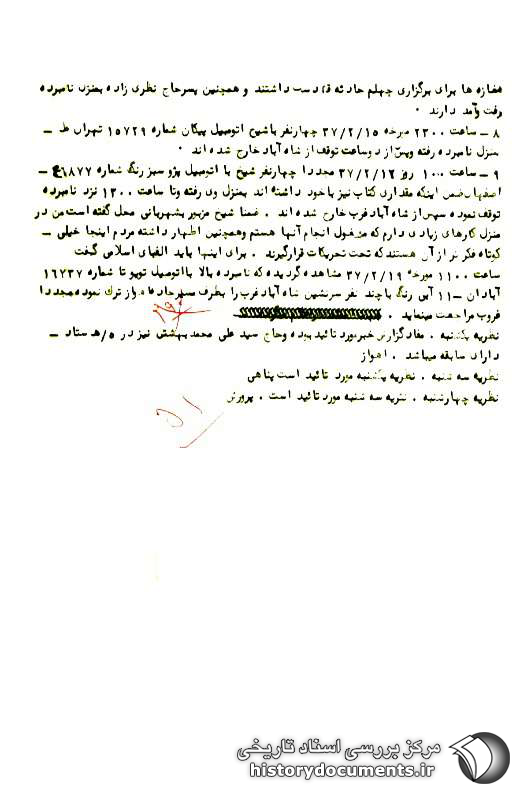 مغازه ها برای برگزاری چهلم حادثه قم دست داشتند و همچنین پسر حاج نظری زاده بمنزل نامبرده
رفت وآمد دارند .
۸ – ساعت ۲۳۰۰ مورخه ۳۷/۲/۱۵ چهارنفر باشیخ اتومبیل پیکان شماره ۱۵۷۲۹ تهران ط –
بمنزل نامبرده رفته وپس از دو ساعت توقف از شاه آباد خارج شده اند .
۹ – ساعت ۱۰۰۰ روز ۳۷/۲/۱۲ مجددا چهارنفر شیخ با اتومبیل پژو سبز رنگ شماره ۶۸۷۷
اصفهان ضمن اینکه مقداری کتاب نیز با خود داشته اند بمنزل وی رفته وتا ساعت ۱۳۰۰ نزد نامبرده
توقف نموده سپس از شاه آباد غرب خارج شده اند . ضمنا شیخ مزبور بشهربانی محل گفته است من در
منزل کارهای زیادی دارم که مشغول انجام آنها هستم وهمچنین اظهار داشته مردم اینجا خیلی –
کوتاه فکر تر از آن هستند که تحت تحریکات قرارگیرند . برای اینها باید الفبای اسلامی گفت
ساعت ۱۱۰۰ مورخه ۳۷/۲/۱۹ مشاهده گردیده که نامبرده بالا با اتومبیل تویو تا شماره ۱۶۷۳۷
آبادان – ۱۱ آبی رنگ با چند نفر سرنشین شاه آباد غرب را بطرف مسیر جاده اهواز ترک نموده مجددا
غروب مراجعت مینماید .
نظریه یکشنبه . مفاد گزارش خبر مورد تائید بوده وحاج سید علی محمد بهشتی نیز در ۵/ هـ ستاد –
دارای سابقه میباشد . اهواز
نظریه سه شنبه . نظریه یکشنبه مورد تائید است پناهی
نظریه چهارشنبه . نظریه سه شنبه مورد تائید است . پرورش
مرکز بررسی اسناد تاریخی
historydocuments.ir